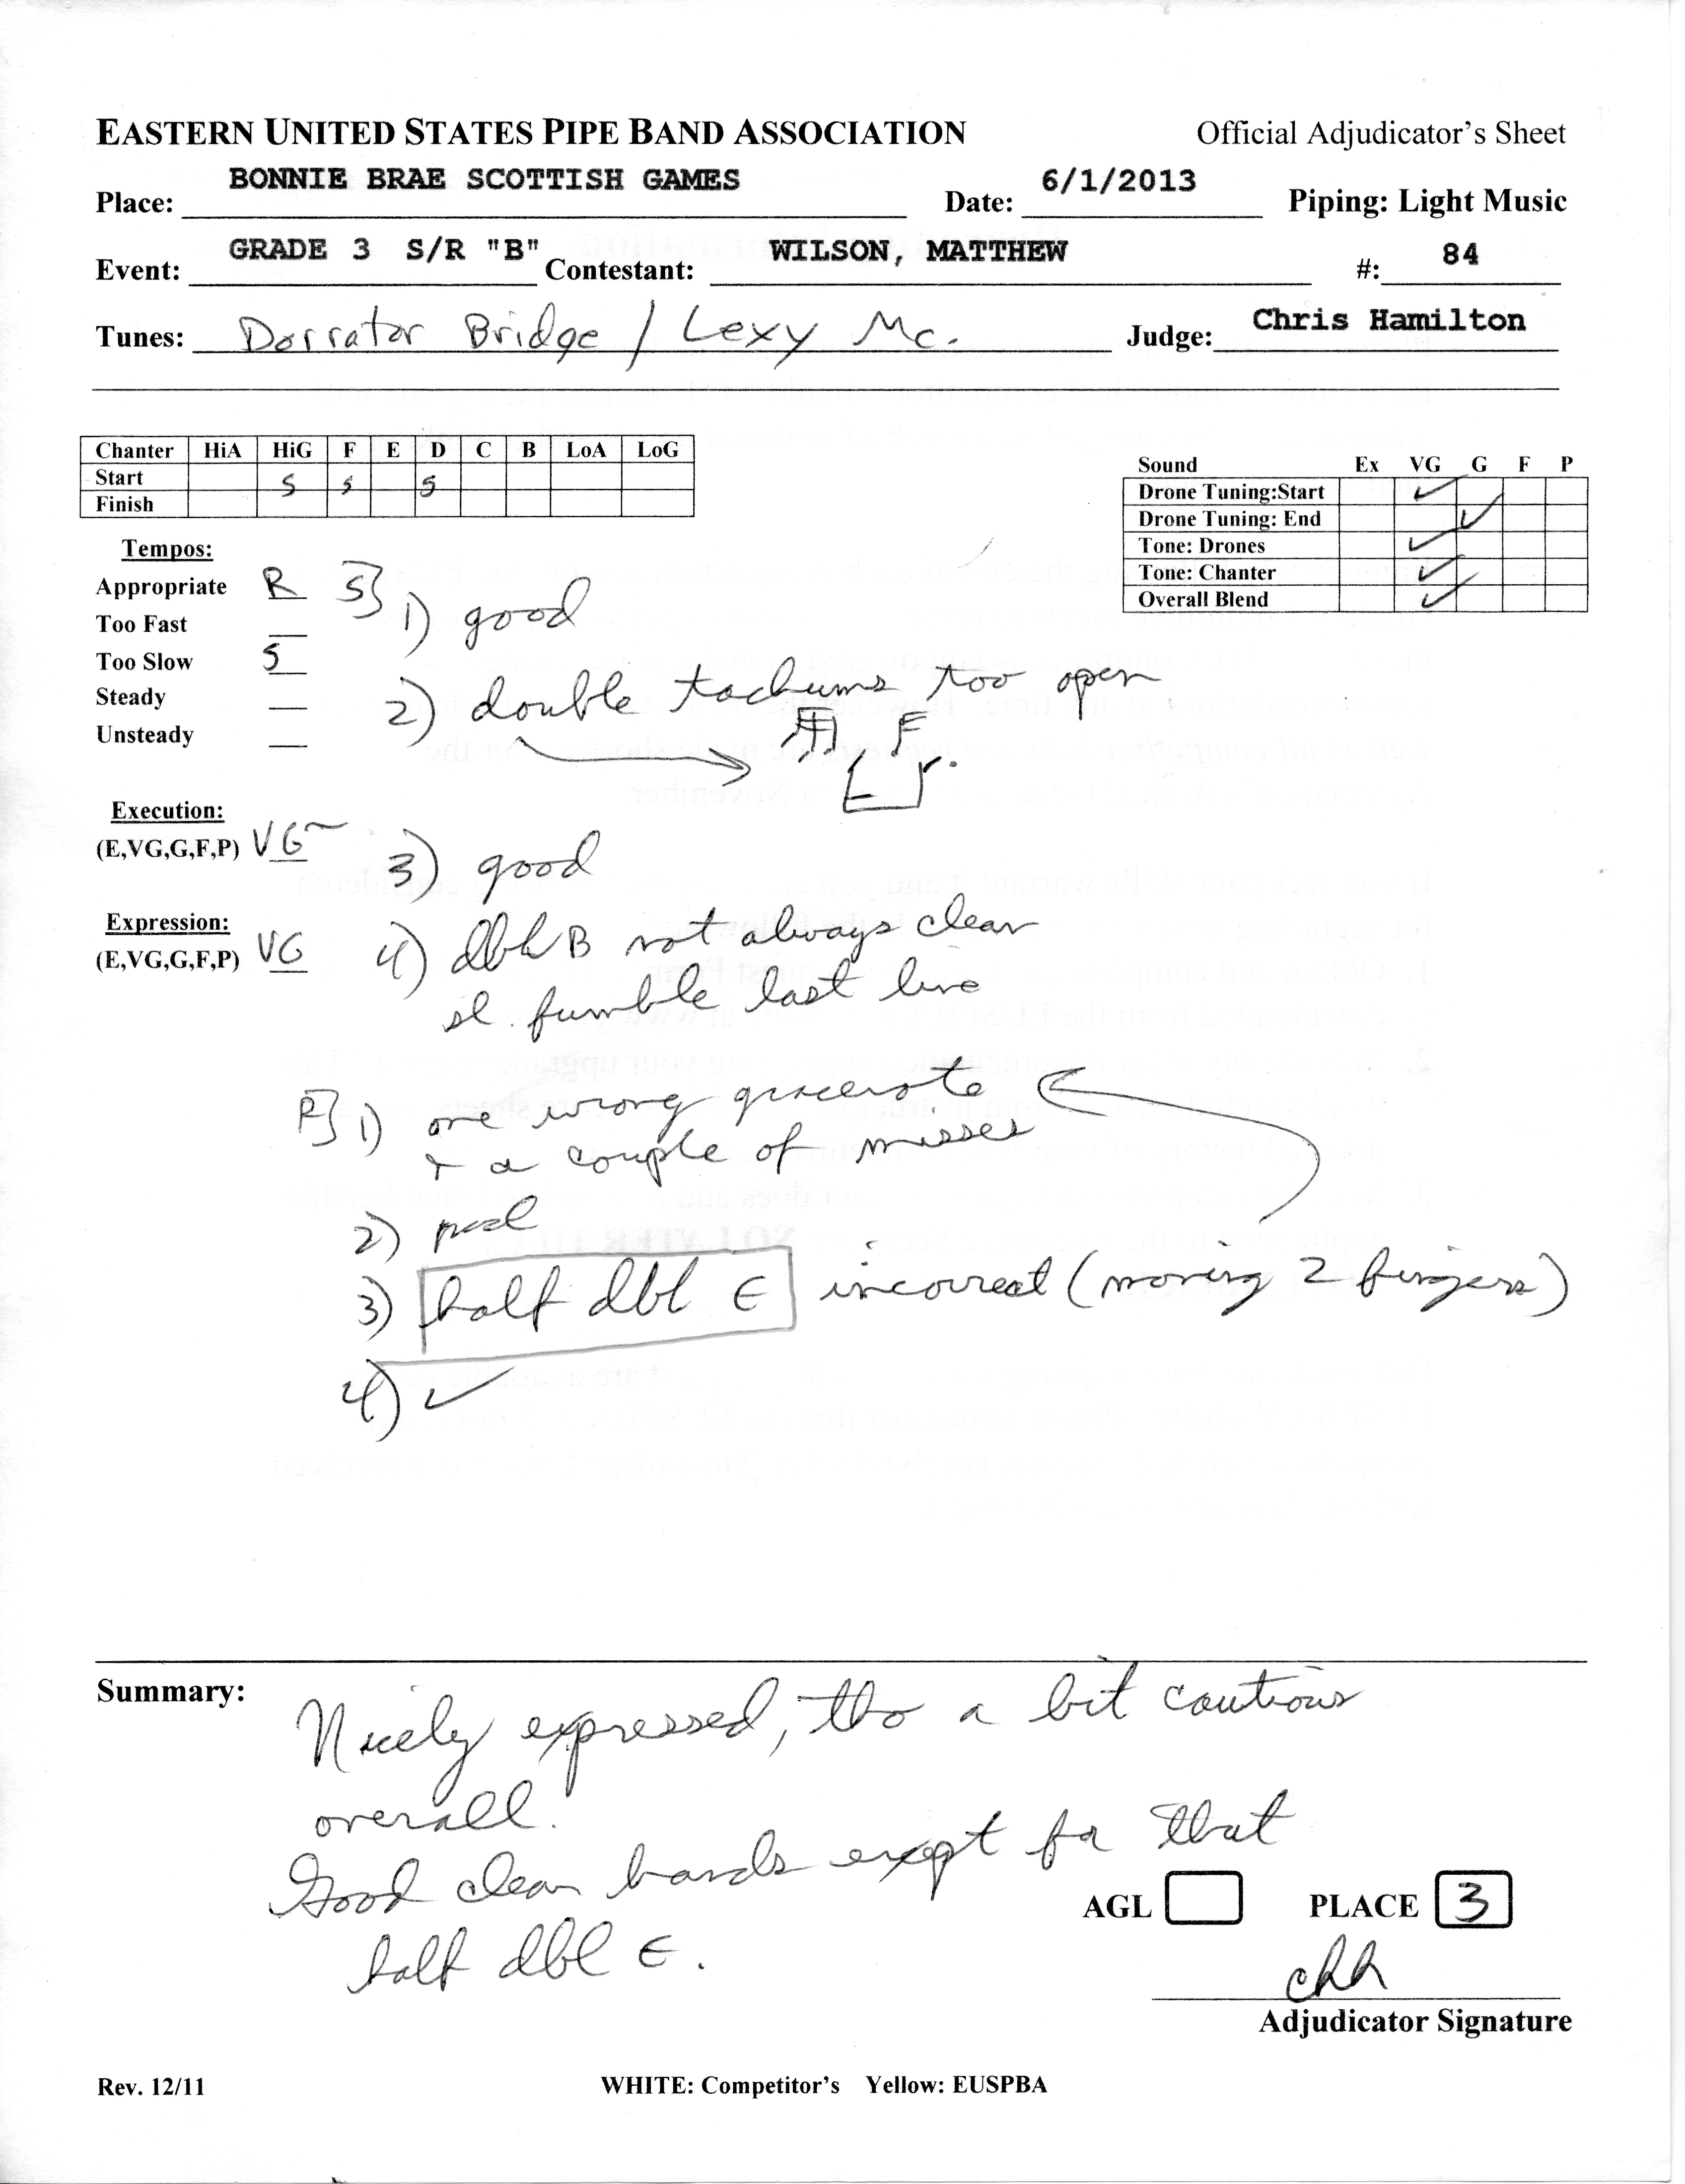 EASTERN UNITED STATES PIPE BAND ASSOCIATION Official Adjudicator's Sheet
Place: BONNIE BRAE SCOTTISH GAMES Date: 6/1/2013 Piping: Light Music
Event: GRADE 3 S/R "B" Contestant: WILSON, MATTHEW #: 84
Tunes: Dorrator Bridge / Lexy Mc. Judge: Chris Hamilton
Chanter HiA HiG F E D C B LoA LoG
Start S S S
Finish
Sound Ex VG G F P
Drone Tuning:Start ✓
Drone Tuning: End ✓
Tone: Drones ✓
Tone: Chanter ✓
Overall Blend ✓
Tempos:
Appropriate R
Too Fast
Too Slow S
Steady
Unsteady
Execution:
(E,VG,G,F,P) VG-
Expression:
(E,VG,G,F,P) VG
S] 1) good
2) double tachums too open
F
E
3) good
4) dbl B not always clear
sl. fumble last line
R] 1) one wrong gracenote
+ a couple of misses
2)
3) half dbl E incorrect (moving 2 fingers)
4) ✓
Summary: Nicely expressed, tho a bit cautious
overall.
Good clean hands except for that
half dbl E.
AGL PLACE 3
chh
Adjudicator Signature
Rev. 12/11 WHITE: Competitor's Yellow: EUSPBA